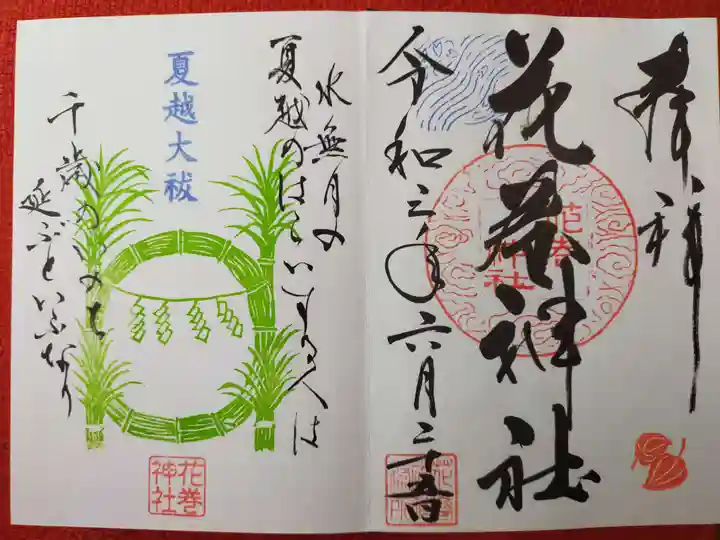 奉拝
花巻神社
花巻神社
令和三年六月二十五日
水無月の
夏越のはらいする人は
夏越大祓
千歳のいのち
延ぶといふなり
花巻神社